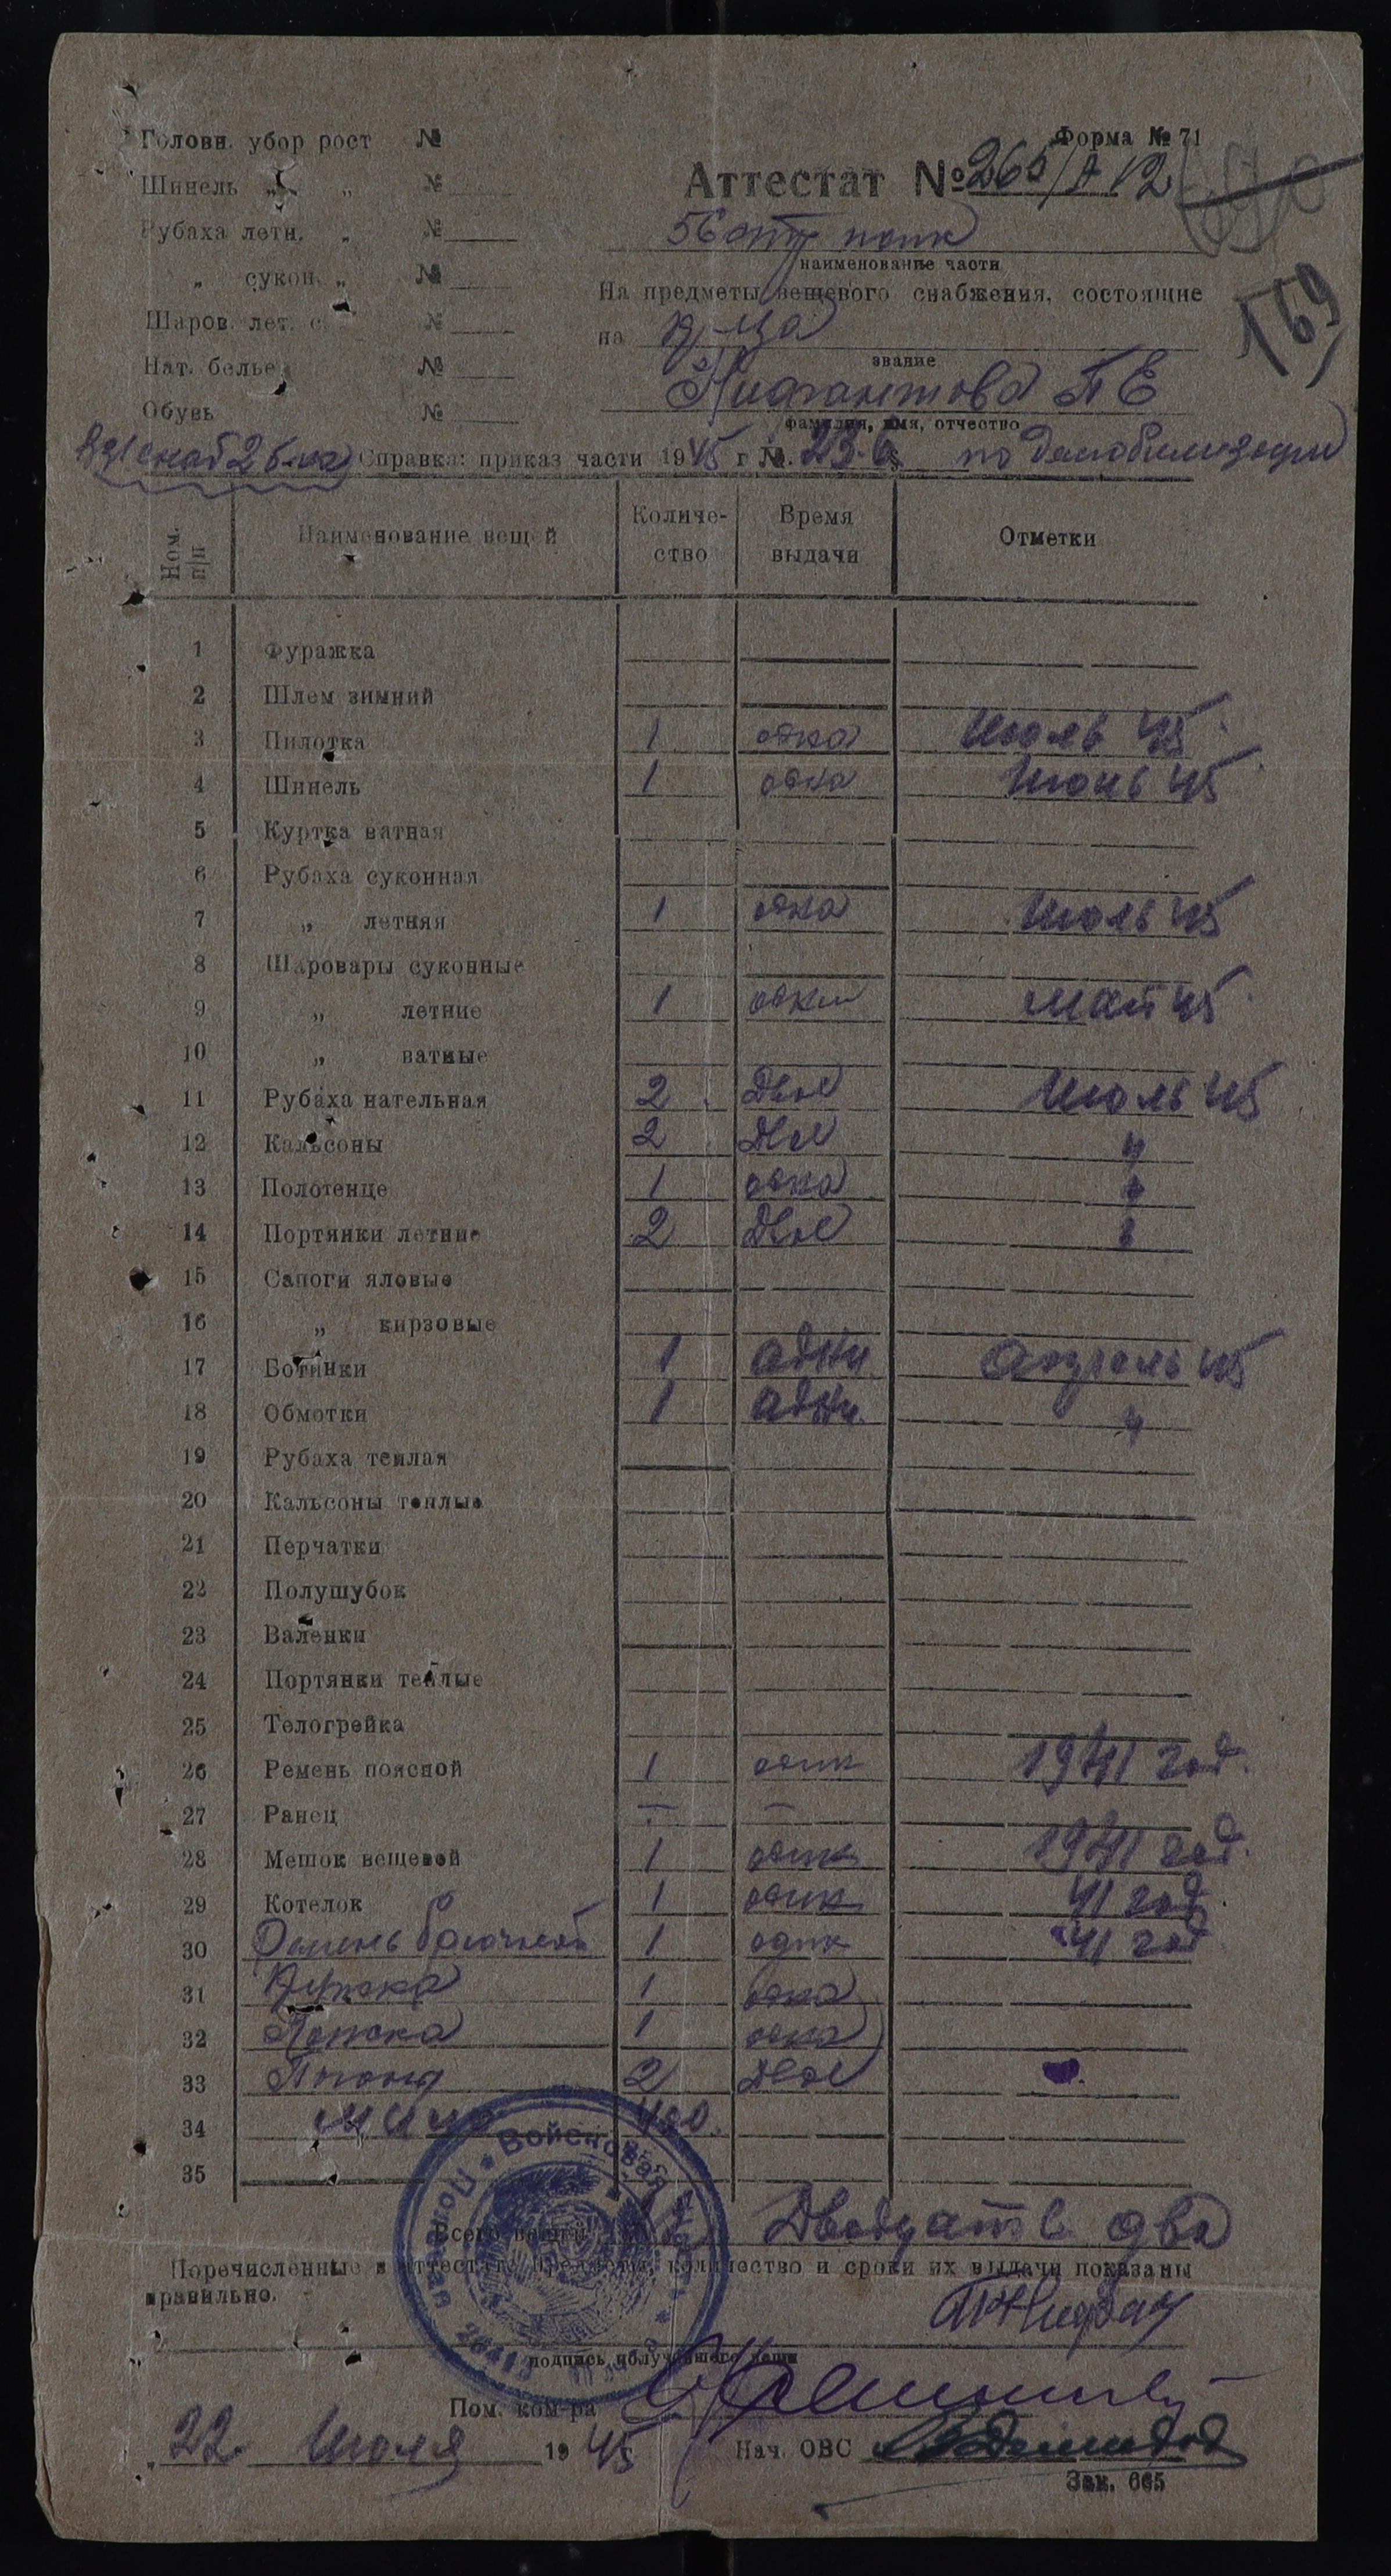 Форма № 71
Головн. убор рост №
Шинель „ „ №
Рубаха летн. „ №
„ сукон. „ №
Шаров. лет. с. №
Нат. белье №
Обувь №
Аттестат № 265/А 12
56 полк
наименование части
На предметы вещевого снабжения, состоящие
на
звание
П Е
фамилия, имя, отчество
169
Справка: приказ части 1945 г №. по демобилизации
Ном. п/п Наименование вещей Количество Время выдачи Отметки
1 Фуражка
2 Шлем зимний
3 Пилотка 1 одна Июль 45
4 Шинель 1 одна Июнь 45
5 Куртка ватная
6 Рубаха суконная
7 „ летняя 1 одна Июль 45
8 Шаровары суконные
9 „ летние 1 одни Май 45
10 „ ватные
11 Рубаха нательная 2 Две Июль 45
12 Кальсоны 2 Две "
13 Полотенце 1 одна "
14 Портянки летние 2 Две "
15 Сапоги яловые
16 „ кирзовые
17 Ботинки 1 адни Апрель 45
18 Обмотки 1 адни "
19 Рубаха теплая
20 Кальсоны теплые
21 Перчатки
22 Полушубок
23 Валенки
24 Портянки теплые
25 Телогрейка
26 Ремень поясной 1 один 1941 год.
27 Ранец — —
28 Мешок вещевой 1 один 1941 год.
29 Котелок 1 один 41 год
30 Ремень брючной 1 один 41 год
31 Кружка 1 одна
32 Ложка 1 одна
33 Погоны 2 Две
34
35
Всего вещей Двадцать два
Перечисленные в аттестате предметы, количество и сроки их выдачи показаны
правильно.
подпись получившего вещи
Войсковая часть Полевая почта
Пом. ком-ра
22 Июля 1945
Нач. ОВС
Зак. 665